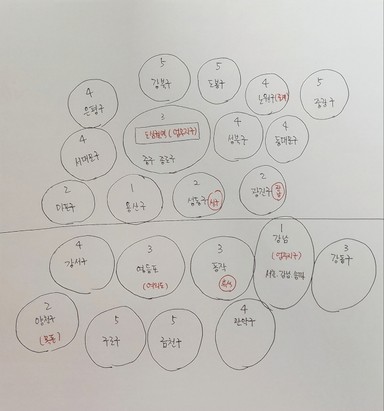 5
강북구
5
도봉구
4
은평구
4
노원구
5
중랑구
3
도심권역 (업무지구)
중구 종로구
4
서대문구
4
성북구
4
동대문구
2
마포구
1
용산구
2
성동구
2
광진구
4
강서구
3
영등포
(여의도)
3
동작
1
강남
(업무지구)
서초 강남 송파
3
강동구
2
양천구
(목동)
5
구로구
5
금천구
4
관악구